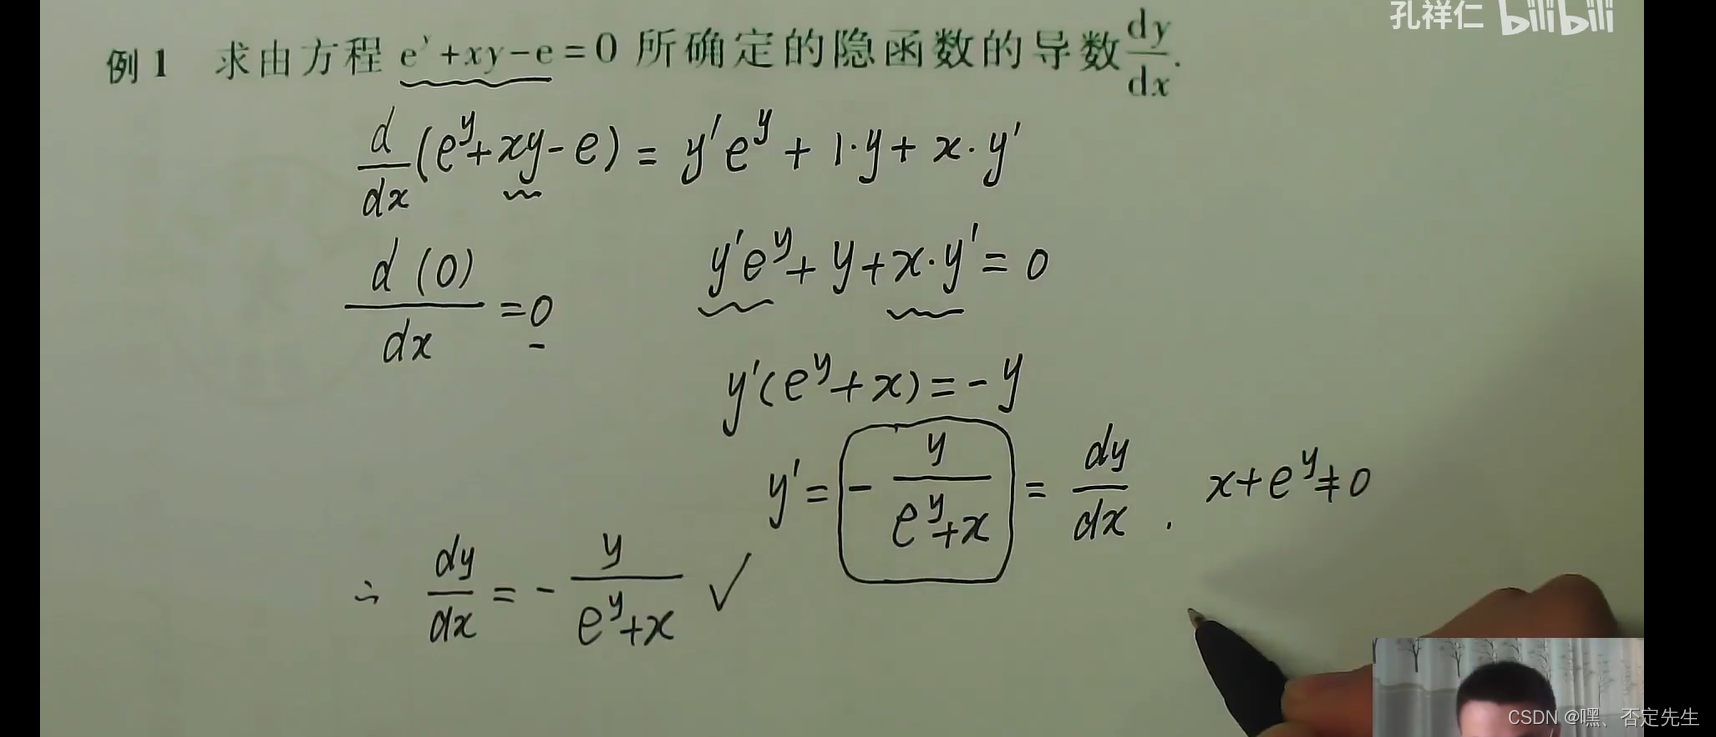 孔祥仁 bilibili
例1 求由方程 e^y+xy-e=0 所确定的隐函数的导数 dy/dx.
d/dx (e^y+xy-e) = y'e^y + 1·y + x·y'
d(0)/dx = 0
y'e^y + y + x·y' = 0
y'(e^y+x) = -y
y' = - y/(e^y+x) = dy/dx . x+e^y≠0
∴ dy/dx = - y/(e^y+x) ✓
CSDN @嘿、否定先生